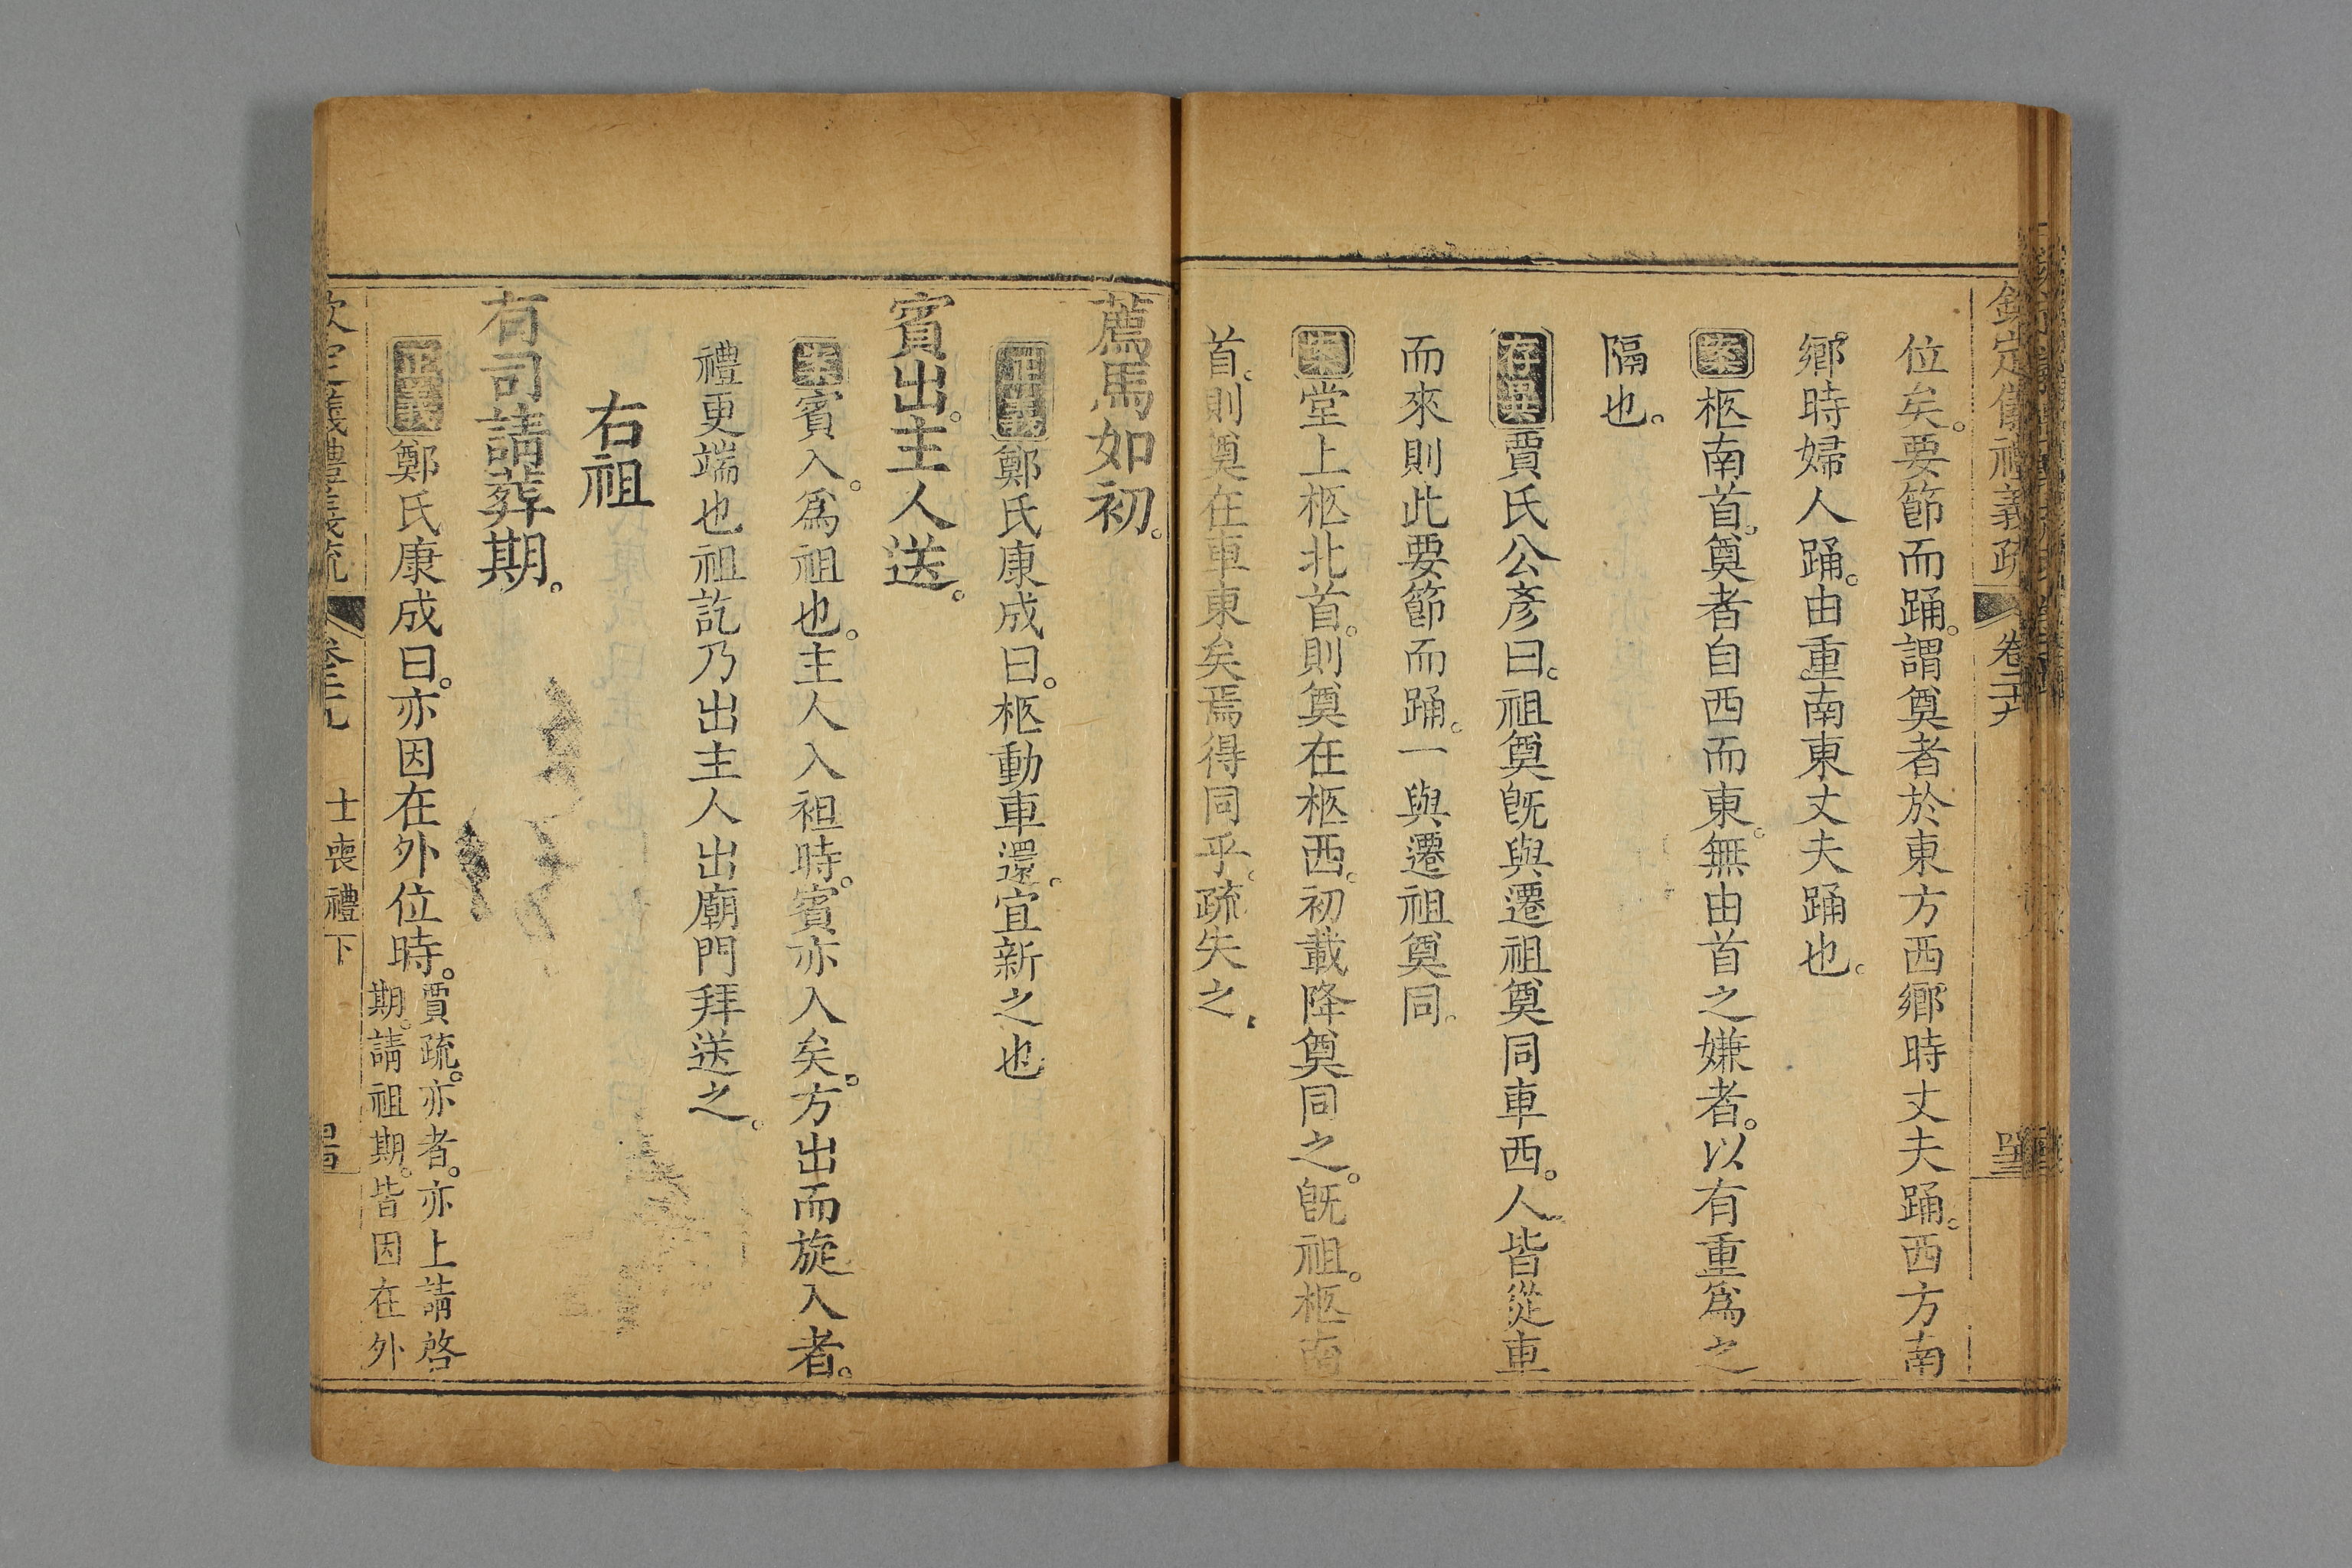 欽定儀禮義疏 卷二十九
位矣。要節而踊。謂奠者於東方西鄉時丈夫踊。西方南
鄉時婦人踊。由重南東丈夫踊也。
案柩南首。奠者自西而東。無由首之嫌者。以有重爲之
隔也。
存異賈氏公彥曰。祖奠旣與遷祖奠同車西。人皆從車
而來則此要節而踊。一與遷祖奠同。
案堂上柩北首。則奠在柩西。初載降奠同之。旣祖。柩南
首。則奠在車東矣焉得同乎。疏失之
薦馬如初。
正義鄭氏康成曰。柩動車還。宜新之也
賓出。主人送。
案賓入。爲祖也。主人入袒時。賓亦入矣。方出而旋入者。
禮更端也祖訖乃出主人出廟門拜送之。
右祖
有司請葬期。
正義鄭氏康成曰。亦因在外位時。賈疏。亦者。亦上請啓
期。請祖期。皆因在外
欽定儀禮義疏 卷二十九 士喪禮下